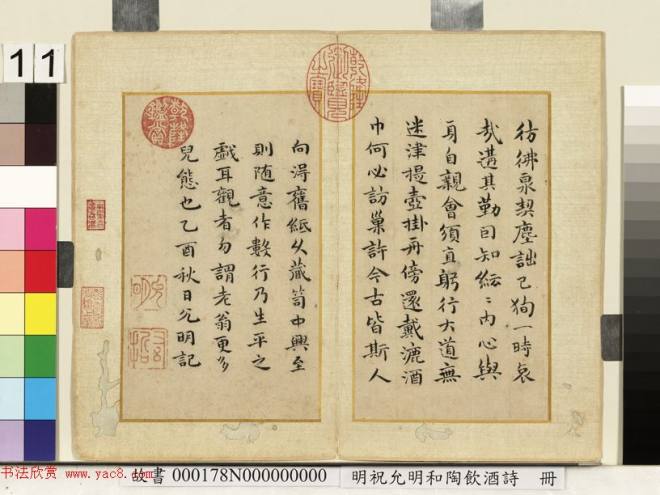 彷彿泉契塵詘己狥一時哀
哉遘其勤自知紜〻內心與
身自親會須直躬行大道無
迷津提壺掛舟傍還戴漉酒
巾何必訪巢許今古皆斯人
向得舊紙久藏笥中興至
則随意作數行乃生平之
戲耳觀者勿謂老翁更多
兒態也乙酉秋日允明記
乾隆御覽之寶
乾隆鑑賞
11
故書 000178N000000000 明祝允明和陶飲酒詩 冊
书法欣赏 www.yac8.com